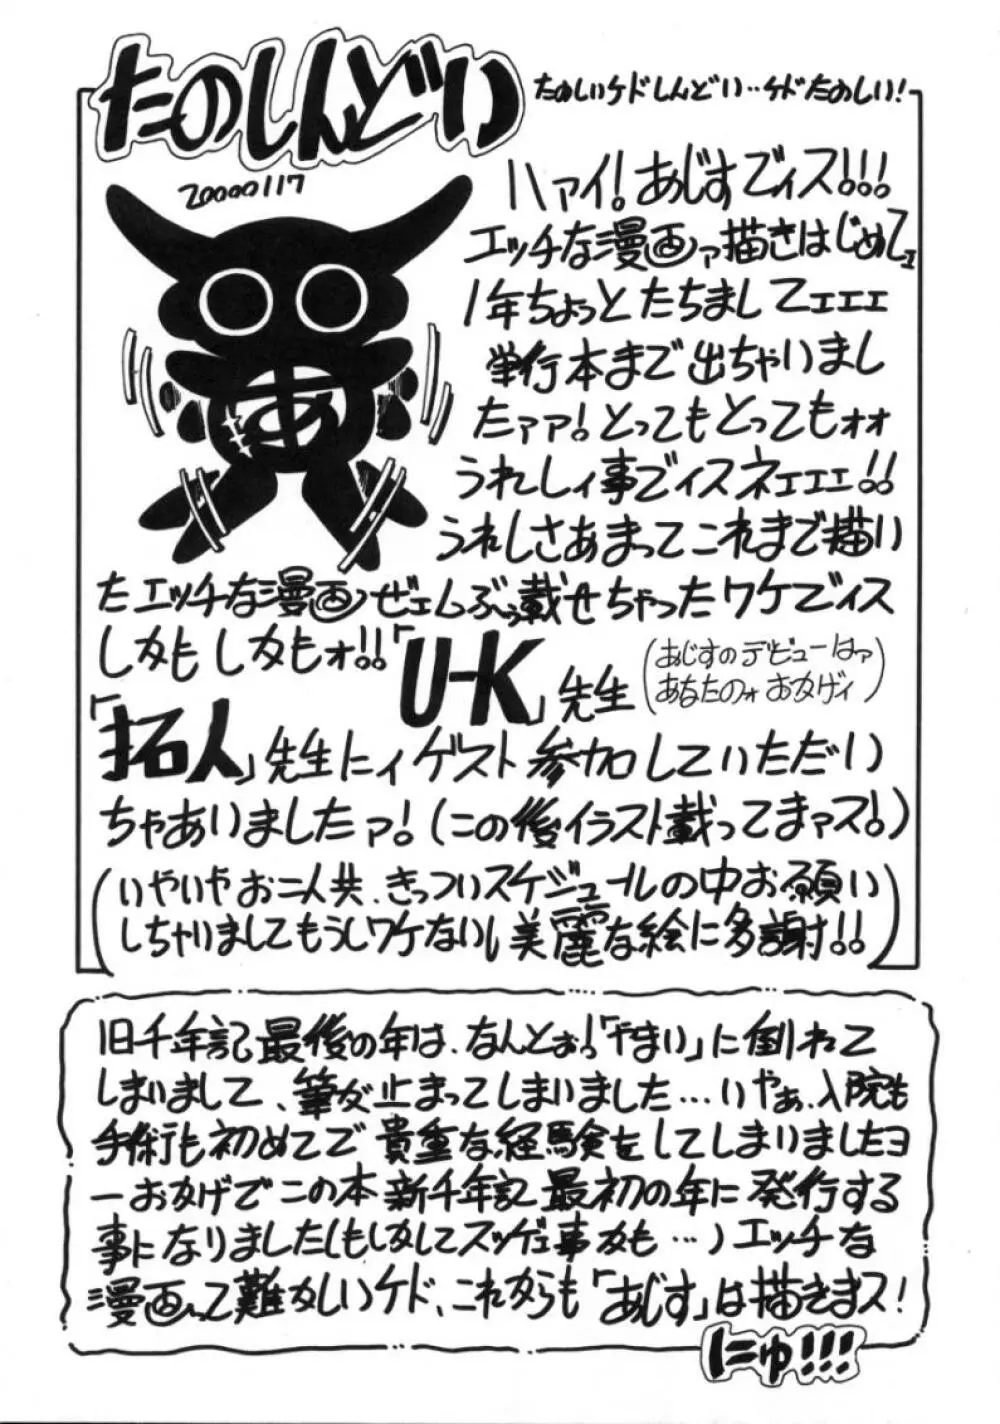 たのしんどい
たのしいケドしんどい‥ケドたのしい!
20000117
ハァイ!あじすでィス!!!
エッチな漫画ァ描きはじめてェ
1年ちょっとたちましてェェェ
単行本まで出ちゃいまし
たァァ!とってもとってもォォ
うれしィ事でィスネェェェ!!
うれしさあまってこれまで描い
あ
たエッチな漫画ぜェんぶっ載せちゃったワケでィス
しかもしかもォ!!「U-K」先生
(あじすのデビューはァ
あなたのォおかげィ)
「拓人」先生にィゲスト参加していただい
ちゃありましたァ!(この後イラスト載ってまァス!)
(いやいやお二人共、きっついスケジュールの中お願い
しちゃいましてもうしワケないし美麗な絵に多謝!!)
旧千年記最後の年は、なんとぉっ「やまい」に倒れて
しまいまして、筆が止まってしまいました…いやぁ、入院も
手術も初めてで貴重な経験をしてしまいましたヨ
ーおかげでこの本新千年記最初の年に発行する
事になりました(もしかしてスッゲェ事かも…)エッチな
漫画って難かしいケド、これからも「あじす」は描きまス!
にゅ!!!